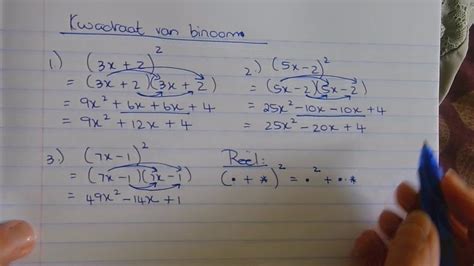 Kwadraat van binoom
1) (3x + 2)²
= (3x + 2)(3x + 2)
= 9x² + 6x + 6x + 4
= 9x² + 12x + 4
2.) (5x - 2)²
= (5x - 2)(5x - 2)
= 25x² - 10x - 10x + 4
= 25x² - 20x + 4
3.) (7x - 1)²
= (7x - 1)(7x - 1)
= 49x² - 14x + 1
Reël:
(• + *)² = •² + •·*